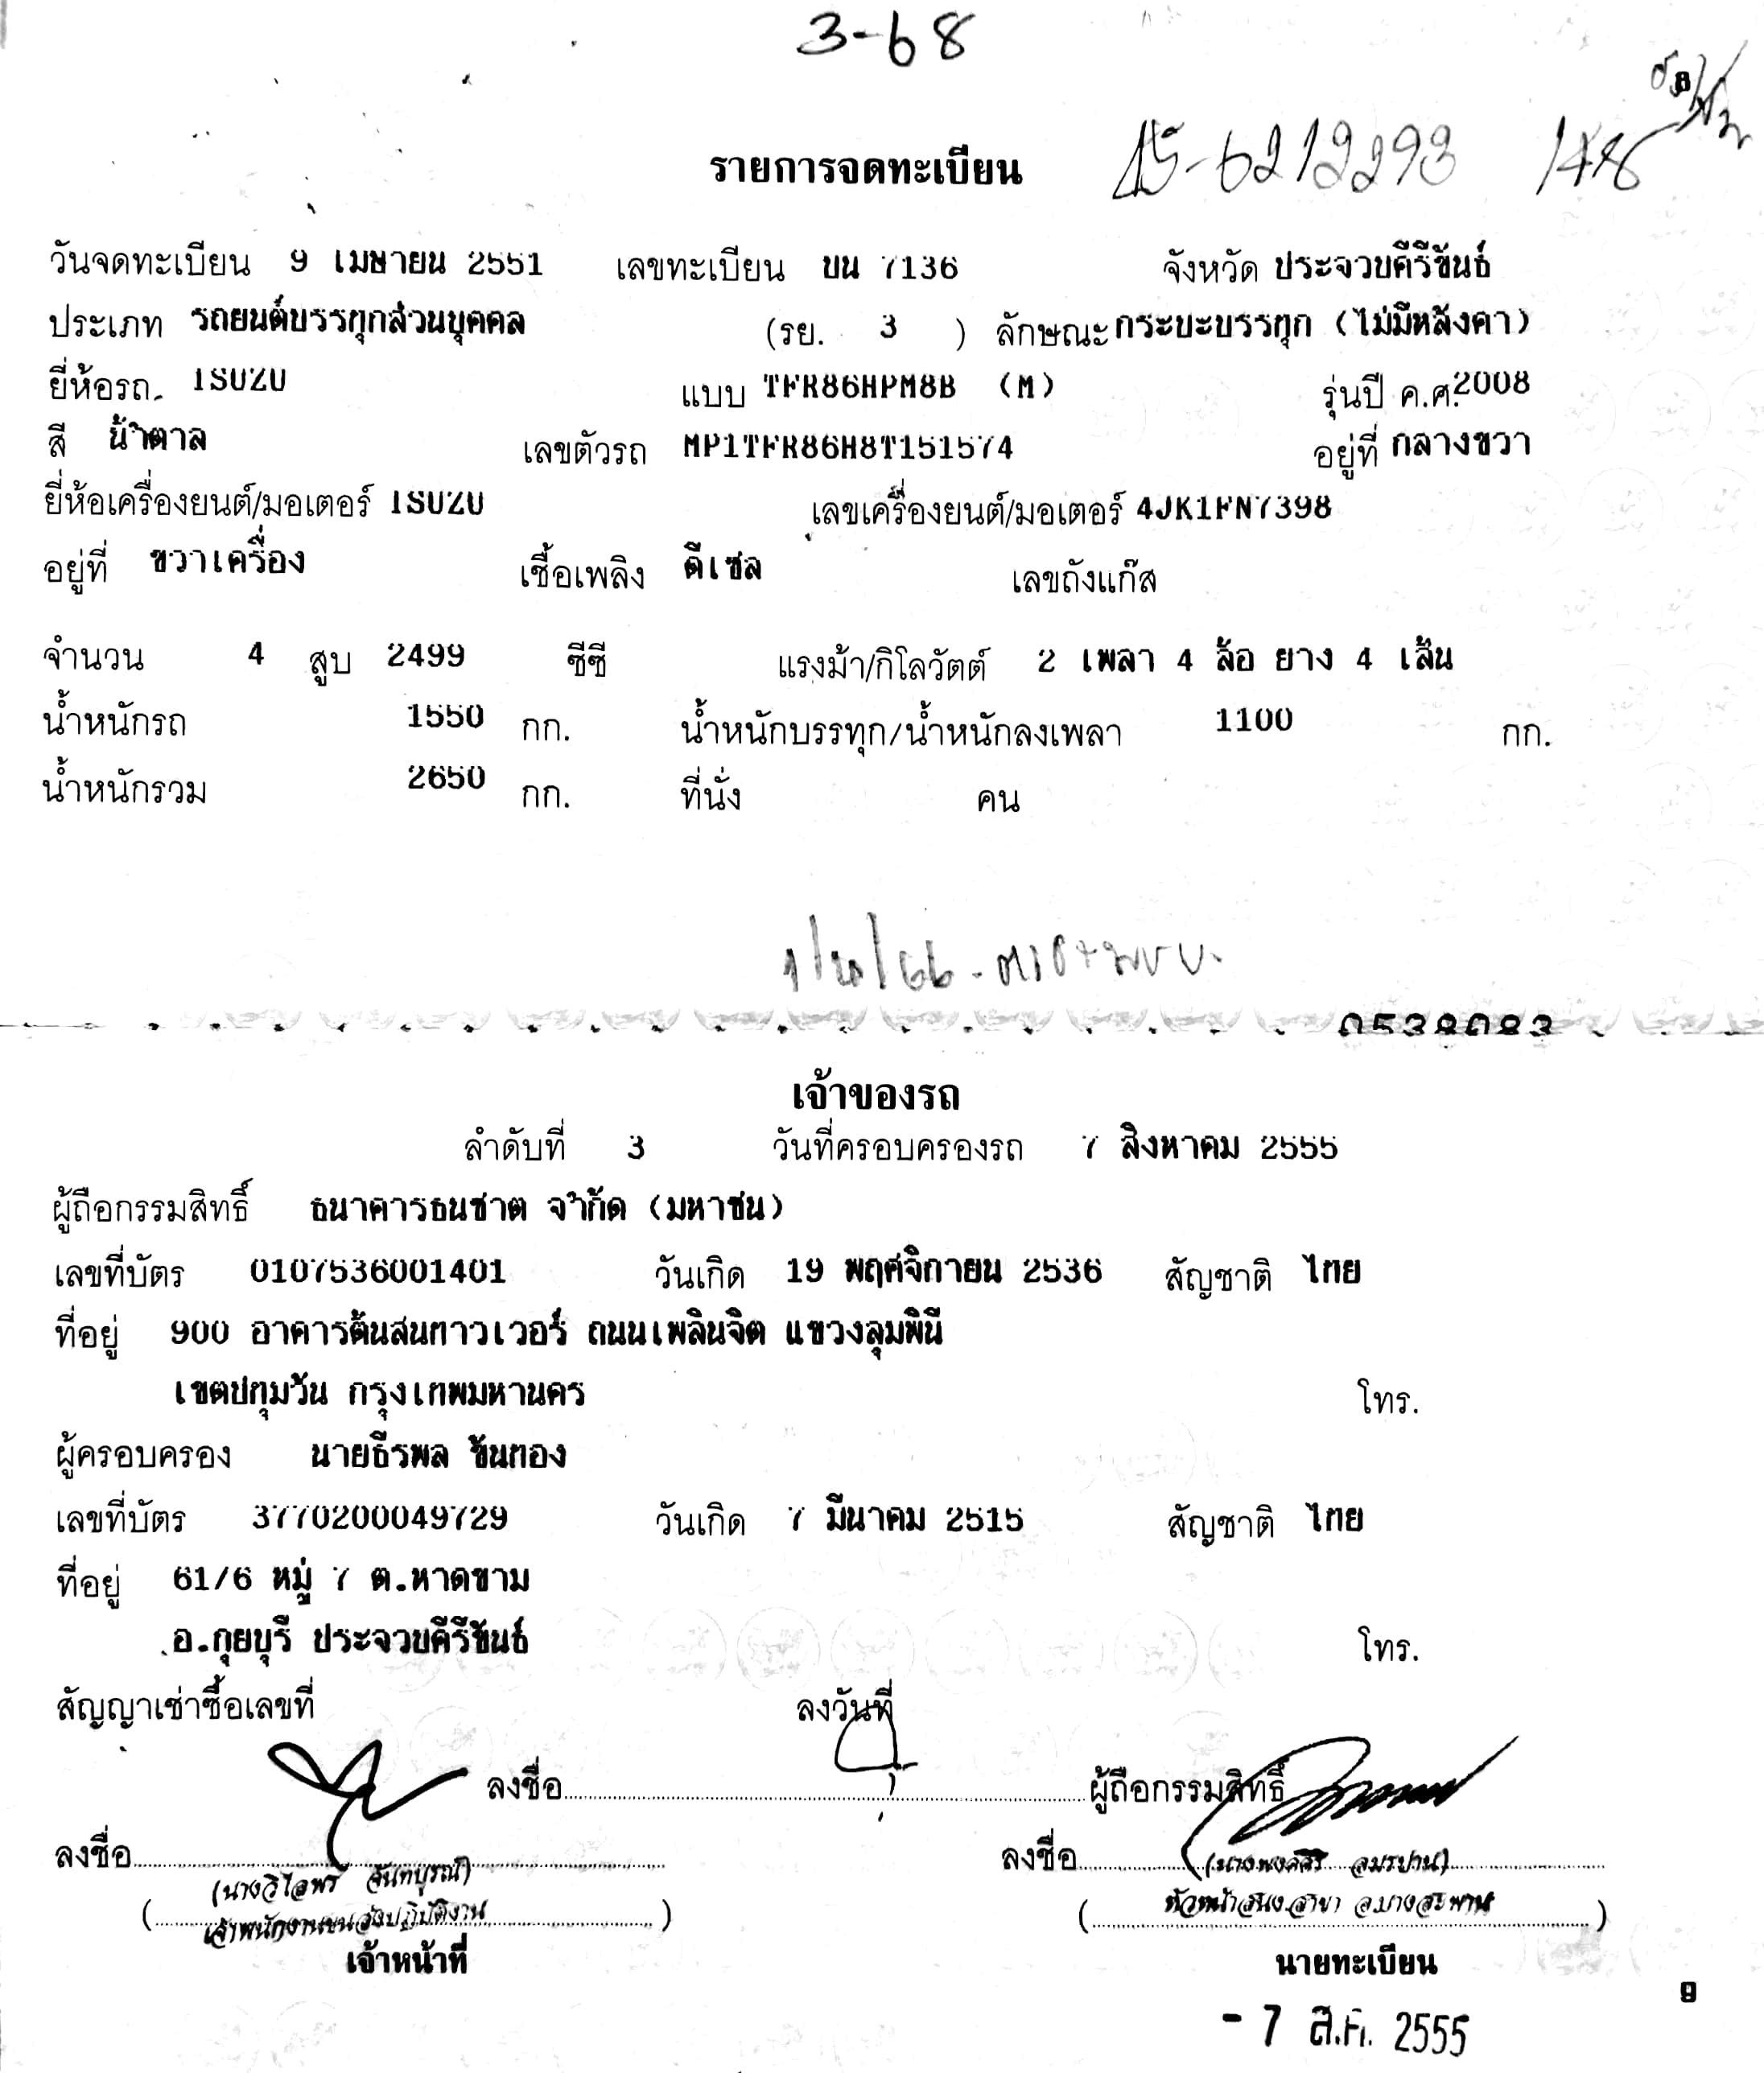 3-68
รายการจดทะเบียน 15-6212293
วันจดทะเบียน 9 เมษายน 2551 เลขทะเบียน บน 7136 จังหวัด ประจวบคีรีขันธ์
ประเภท รถยนต์บรรทุกส่วนบุคคล (รย. 3 ) ลักษณะ กระบะบรรทุก (ไม่มีหลังคา)
ยี่ห้อรถ. ISUZU แบบ TFR86HPM8B (M) รุ่นปี ค.ศ. 2008
สี น้ำตาล เลขตัวรถ MP1TFR86H8T151574 อยู่ที่ กลางขวา
ยี่ห้อเครื่องยนต์/มอเตอร์ ISUZU เลขเครื่องยนต์/มอเตอร์ 4JK1FN7398
อยู่ที่ ขวาเครื่อง เชื้อเพลิง ดีเซล เลขถังแก๊ส
จำนวน 4 สูบ 2499 ซีซี แรงม้า/กิโลวัตต์ 2 เพลา 4 ล้อ ยาง 4 เส้น
น้ำหนักรถ 1550 กก. น้ำหนักบรรทุก/น้ำหนักลงเพลา 1100 กก.
น้ำหนักรวม 2650 กก. ที่นั่ง คน
0538083
เจ้าของรถ
ลำดับที่ 3 วันที่ครอบครองรถ 7 สิงหาคม 2555
ผู้ถือกรรมสิทธิ์ ธนาคารธนชาต จำกัด (มหาชน)
เลขที่บัตร 0107536001401 วันเกิด 19 พฤศจิกายน 2536 สัญชาติ ไทย
ที่อยู่ 900 อาคารต้นสนทาวเวอร์ ถนนเพลินจิต แขวงลุมพินี
เขตปทุมวัน กรุงเทพมหานคร โทร.
ผู้ครอบครอง นายธีรพล ขันทอง
เลขที่บัตร 3770200049729 วันเกิด 7 มีนาคม 2515 สัญชาติ ไทย
ที่อยู่ 61/6 หมู่ 7 ต.หาดขาม
อ.กุยบุรี ประจวบคีรีขันธ์ โทร.
สัญญาเช่าซื้อเลขที่ ลงวันที่
ลงชื่อ ผู้ถือกรรมสิทธิ์
ลงชื่อ ลงชื่อ
(นางวิไลพร จันทบูรณ์) (นางพงศ์ศิริ อมรปาน)
เจ้าพนักงานขนส่งปฏิบัติงาน หัวหน้าสนง.สาขา อ.บางสะพาน
เจ้าหน้าที่ นายทะเบียน
9
- 7 ส.ค. 2555